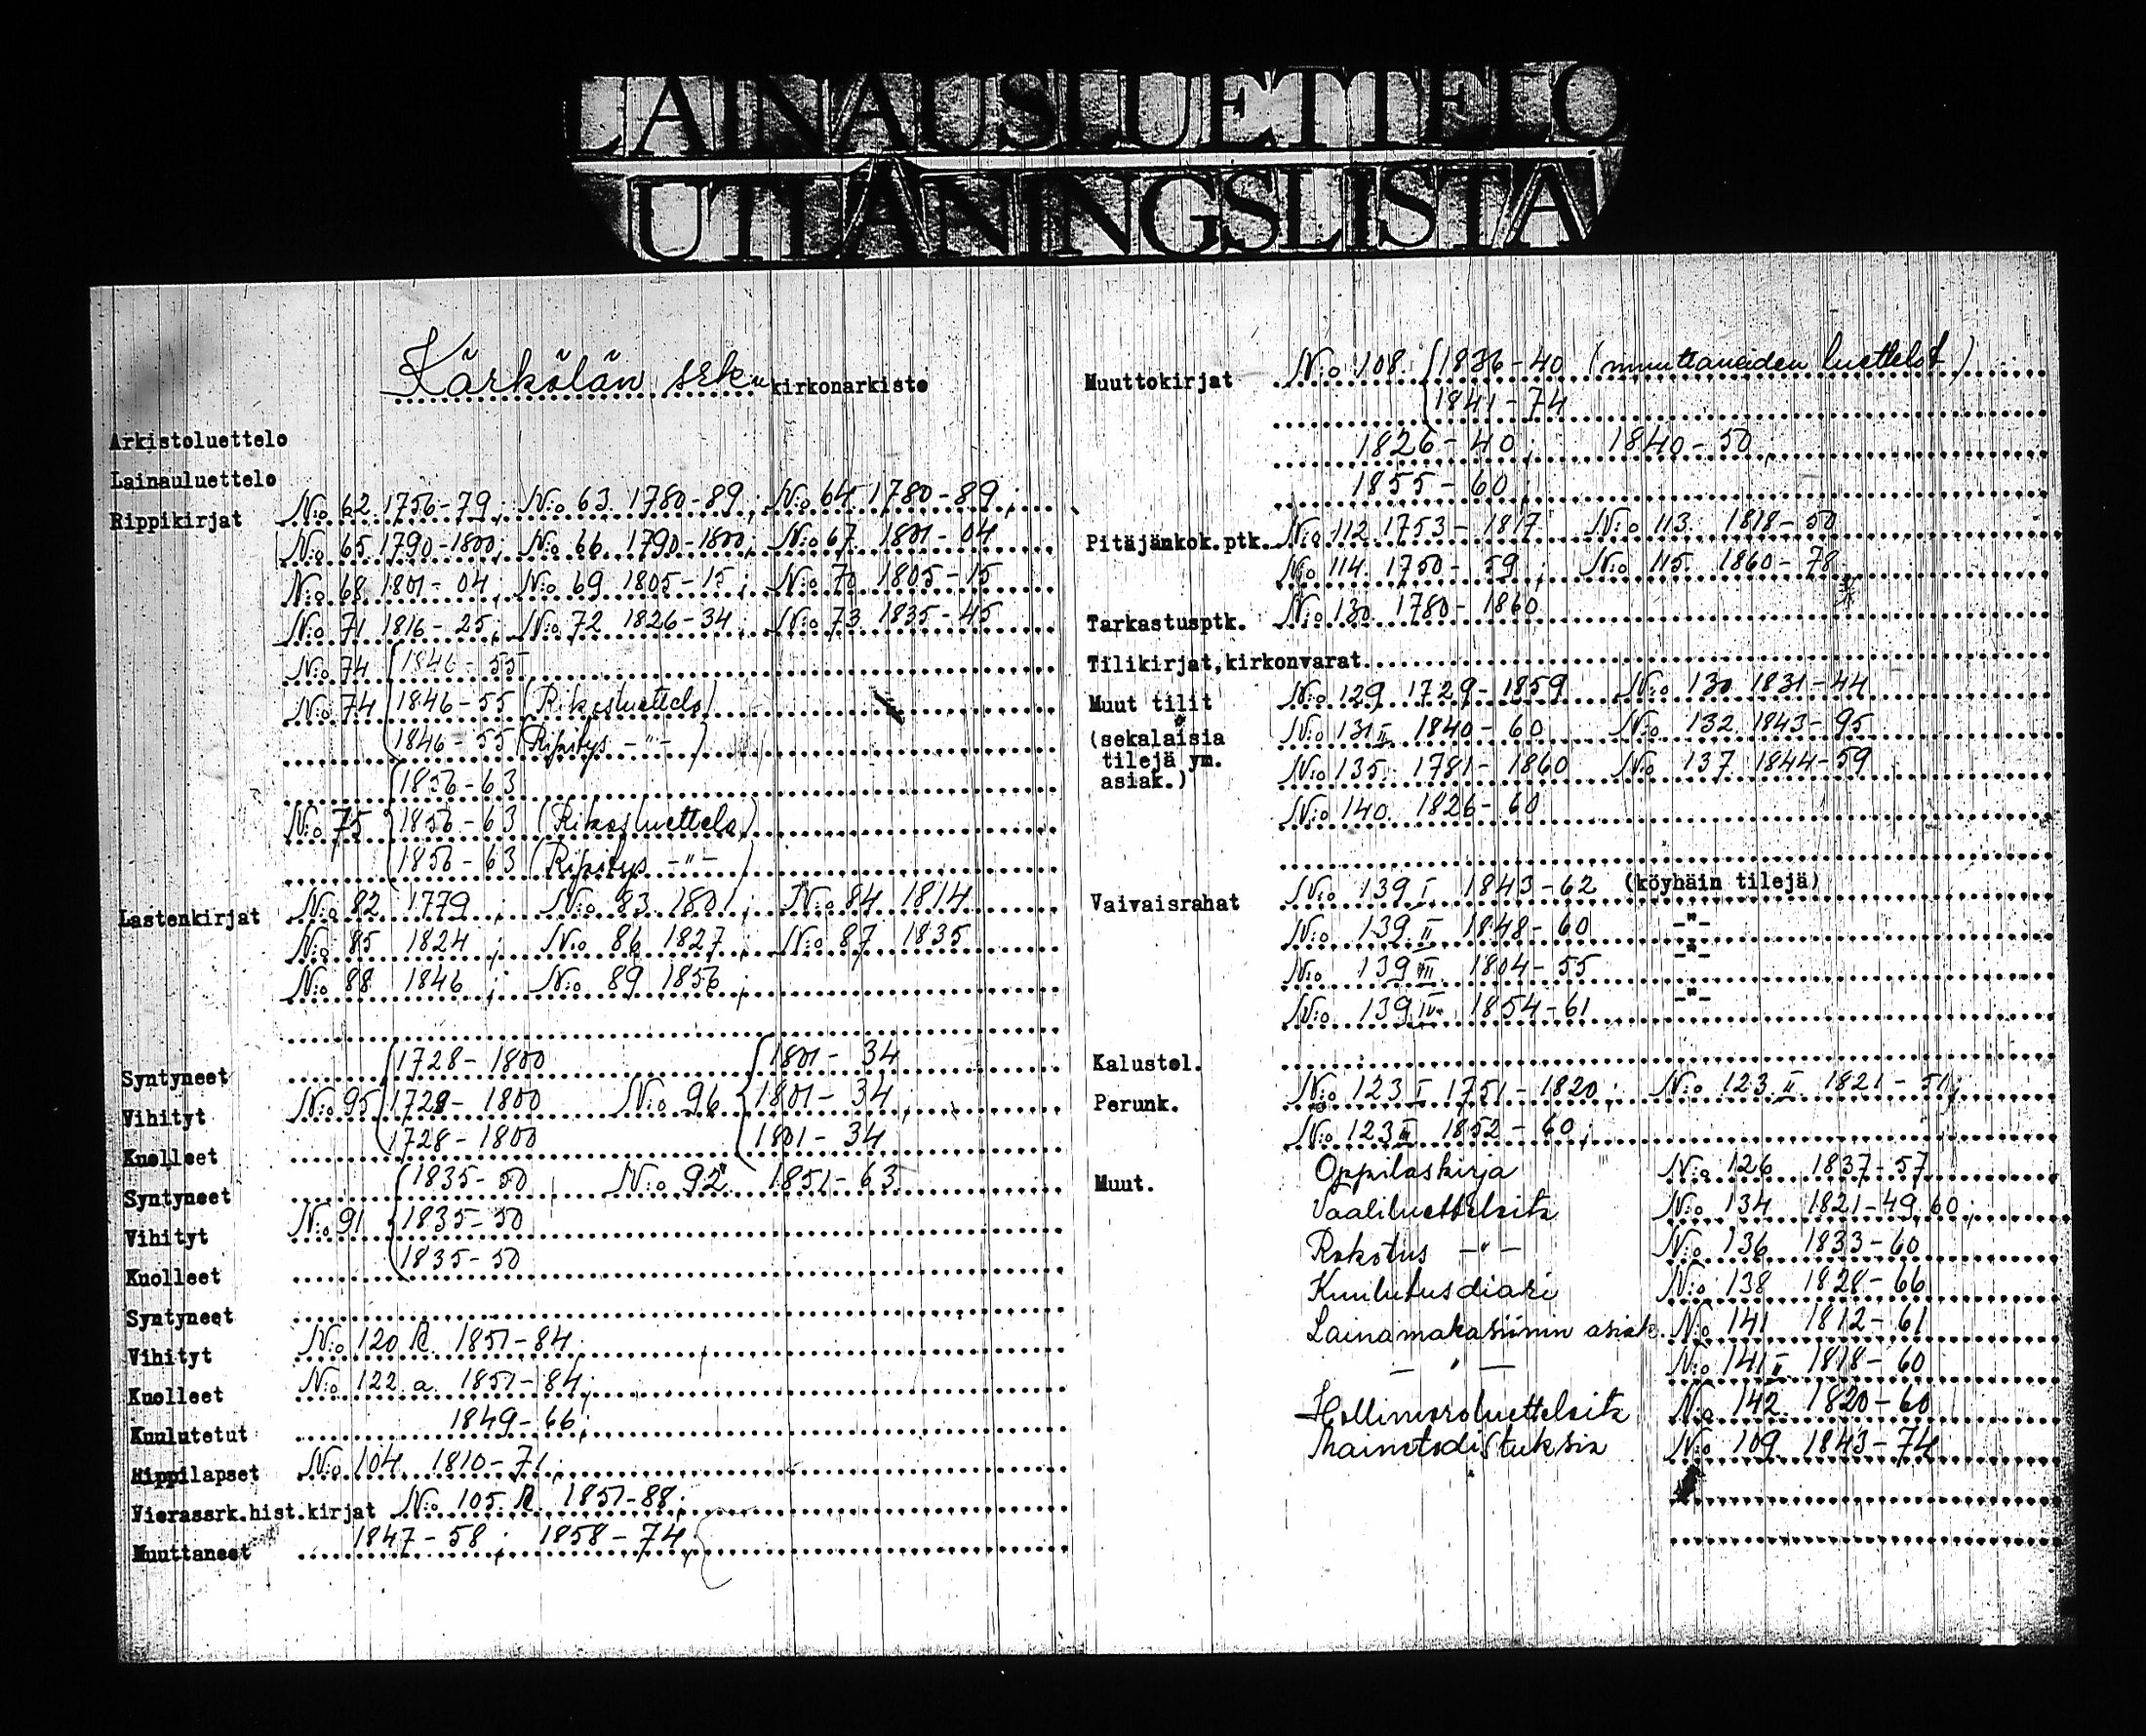 LAINAUSLUETTELO
UTLÅNINGSLISTA
Kärkölän srk:n kirkonarkisto
Arkistoluettelo
Lainauluettelo
Rippikirjat N:o 62 1756-79; N:o 63 1780-89; N:o 64 1780-89;
N:o 65 1790-1800; N:o 66 1790-1800; N:o 67 1801-04
N:o 68 1801-04; N:o 69 1805-15; N:o 70 1805-15
N:o 71 1816-25; N:o 72 1826-34; N:o 73 1835-45
N:o 74 1846-55
N:o 74 1846-55 (Rikosluettelo)
1846-55 (Ripitys -"-)
1856-63
N:o 75 1856-63 (Rikosluettelo)
1856-63 (Ripitys -"-)
Lastenkirjat N:o 82 1779; N:o 83 1801; N:o 84 1814
N:o 85 1824; N:o 86 1827; N:o 87 1835
N:o 88 1846; N:o 89 1856;
Syntyneet 1728-1800 1801-34
Vihityt N:o 95 1728-1800 N:o 96 1801-34
Kuolleet 1728-1800 1801-34
Syntyneet 1835-50 N:o 92 1851-63
Vihityt N:o 91 1835-50
Kuolleet 1835-50
Syntyneet
Vihityt N:o 120 1851-84;
Kuolleet N:o 122 a 1851-84;
Kuulutetut 1849-66;
Rippilapset N:o 104 1810-71;
Vierassrk.hist.kirjat N:o 105 1851-88;
Muuttaneet 1847-58; 1858-74;
Muuttokirjat N:o 108 1836-40 (muuttaneiden luettelot)
1841-74
1826-40; 1840-50,
1855-60;
Pitäjänkok.ptk. N:o 112 1753-1817 N:o 113 1818-50
N:o 114 1750-59; N:o 115 1860-78
Tarkastusptk. N:o 130 1780-1860
Tilikirjat,kirkonvarat
Muut tilit N:o 129 1729-1859 N:o 130 1831-44
(sekalaisia N:o 131 II 1840-60 N:o 132 1843-95
tilejä ym. N:o 135 1781-1860 N:o 137 1844-59
asiak.)
N:o 140 1826-60
Vaivaisrahat N:o 139 I 1843-62 (köyhäin tilejä)
N:o 139 II 1848-60 -"-
N:o 139 III 1804-55 -"-
N:o 139 IV 1854-61 -"-
Kalustol.
Perunk. N:o 123 I 1751-1820; N:o 123 II 1821-51;
N:o 123 III 1852-60;
Muut. Oppilaskirja N:o 126 1837-57
Vaaliluetteloita N:o 134 1821-49, 60;
Rokotus -"- N:o 136 1833-60
Kuulutusdiari N:o 138 1828-66
Lainamakasiinin asiak. N:o 141 1812-61
-"- N:o 141 II 1818-60
Hollimiesluetteloita N:o 142 1820-60
Mainetodistuksia N:o 109 1843-74